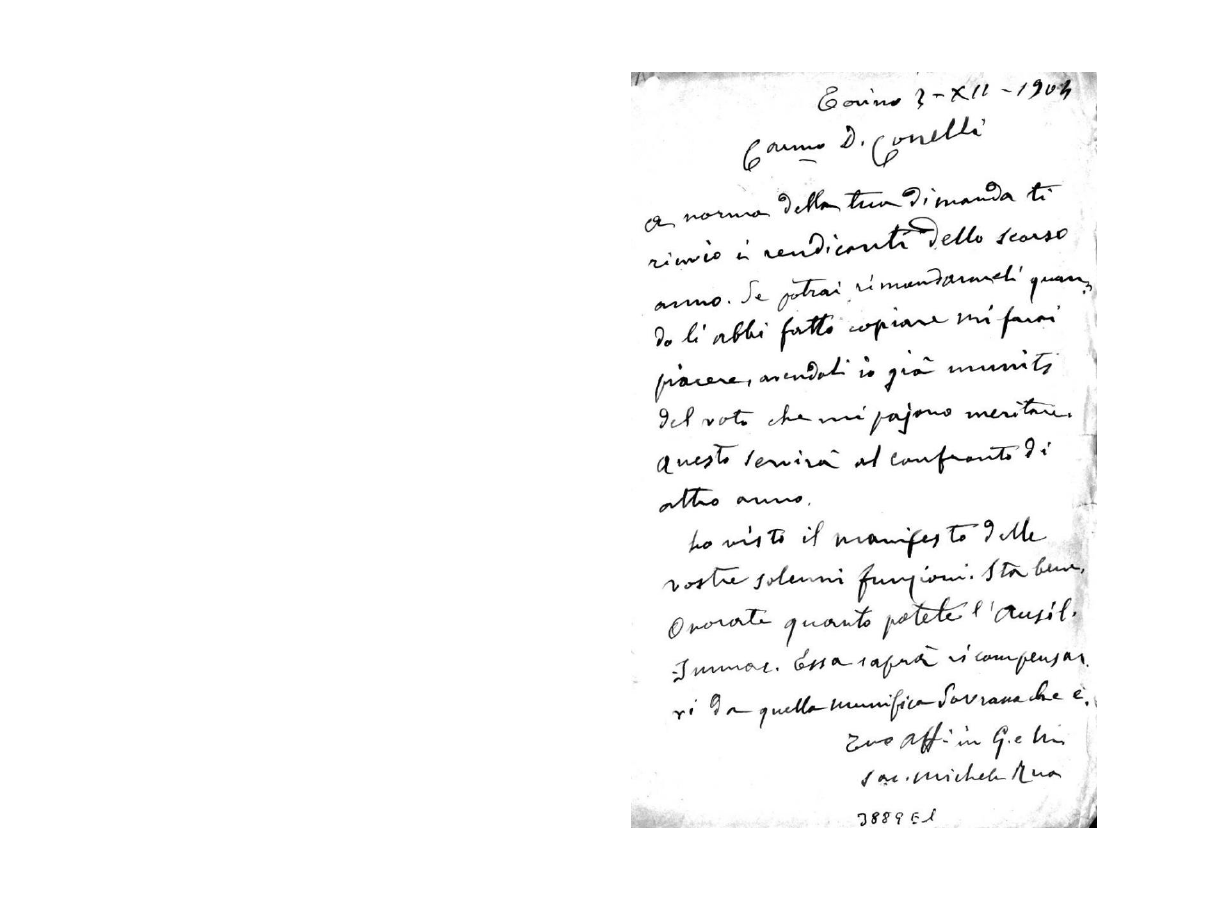 Torino 3-XII-1904
Carmo D. Conelli
a norma della tua dimanda ti
rinvio i rendiconti dello scorso
anno. Se potrai rimandarmeli quan
do li abbi fatto copiare mi farai
piacere, avendoli io già muniti
del voto che mi pajono meritare.
Questo servirà al confronto di
altro anno.
ho visto il manifesto delle
vostre solenni funzioni. Sta bene,
Onorate quanto potete l'Ausil.
Immac. Essa saprà ricompensar
vi da quella munifica Sovrana che è.
Tuo Aff in G. e M.
Sac. Michele Rua
3889